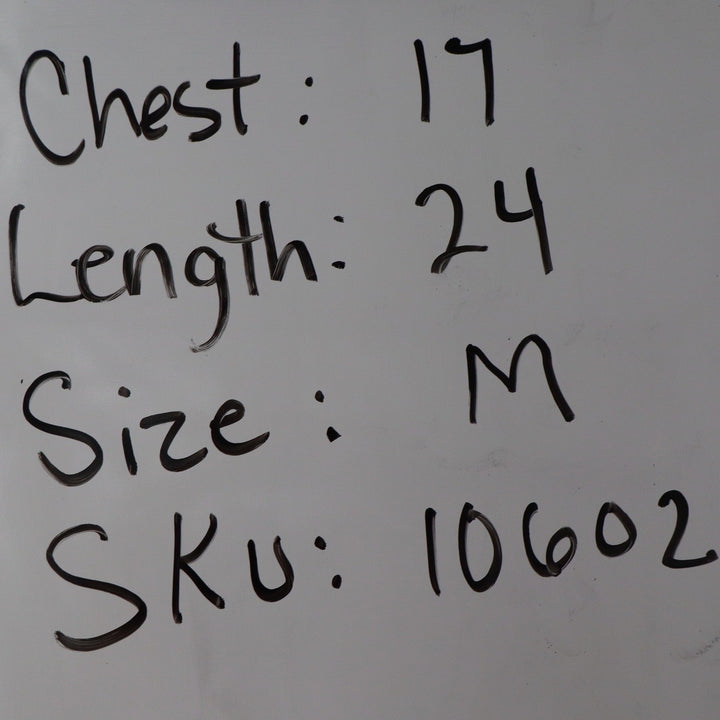 Chest: 17
Length: 24
Size: M
SKU: 10602